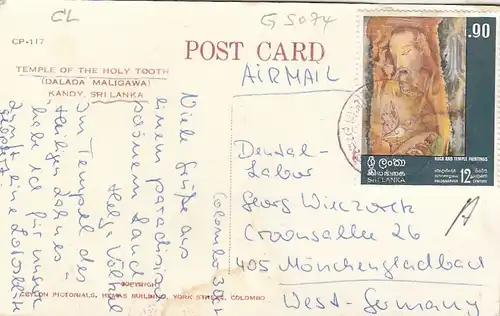 CL
G 5074
CP-117
POST CARD
AIRMAIL
TEMPLE OF THE HOLY TOOTH
(DALADA MALIGAWA)
KANDY, SRI LANKA
.90
ශ්‍රී ලංකා
இலங்கை
SRI LANKA
ROCK AND TEMPLE PAINTINGS
POLONNARUWA
12
CENTURY
Colombo 30.1
Viele Grüße aus
einem paradisisch
schönem Land
Helga Völkel
"Im Tempel des
Heiligen Zahnes"
habe ich für unsere
Zunft eine Lotosblüte
geopfert.
Dental-
Labor
Georg Wieczorek
Croonsallee 26
405 Mönchengladbach
West-Germany
COPYRIGHT
CEYLON PICTORIALS, HEMAS BUILDING, YORK STREET, COLOMBO